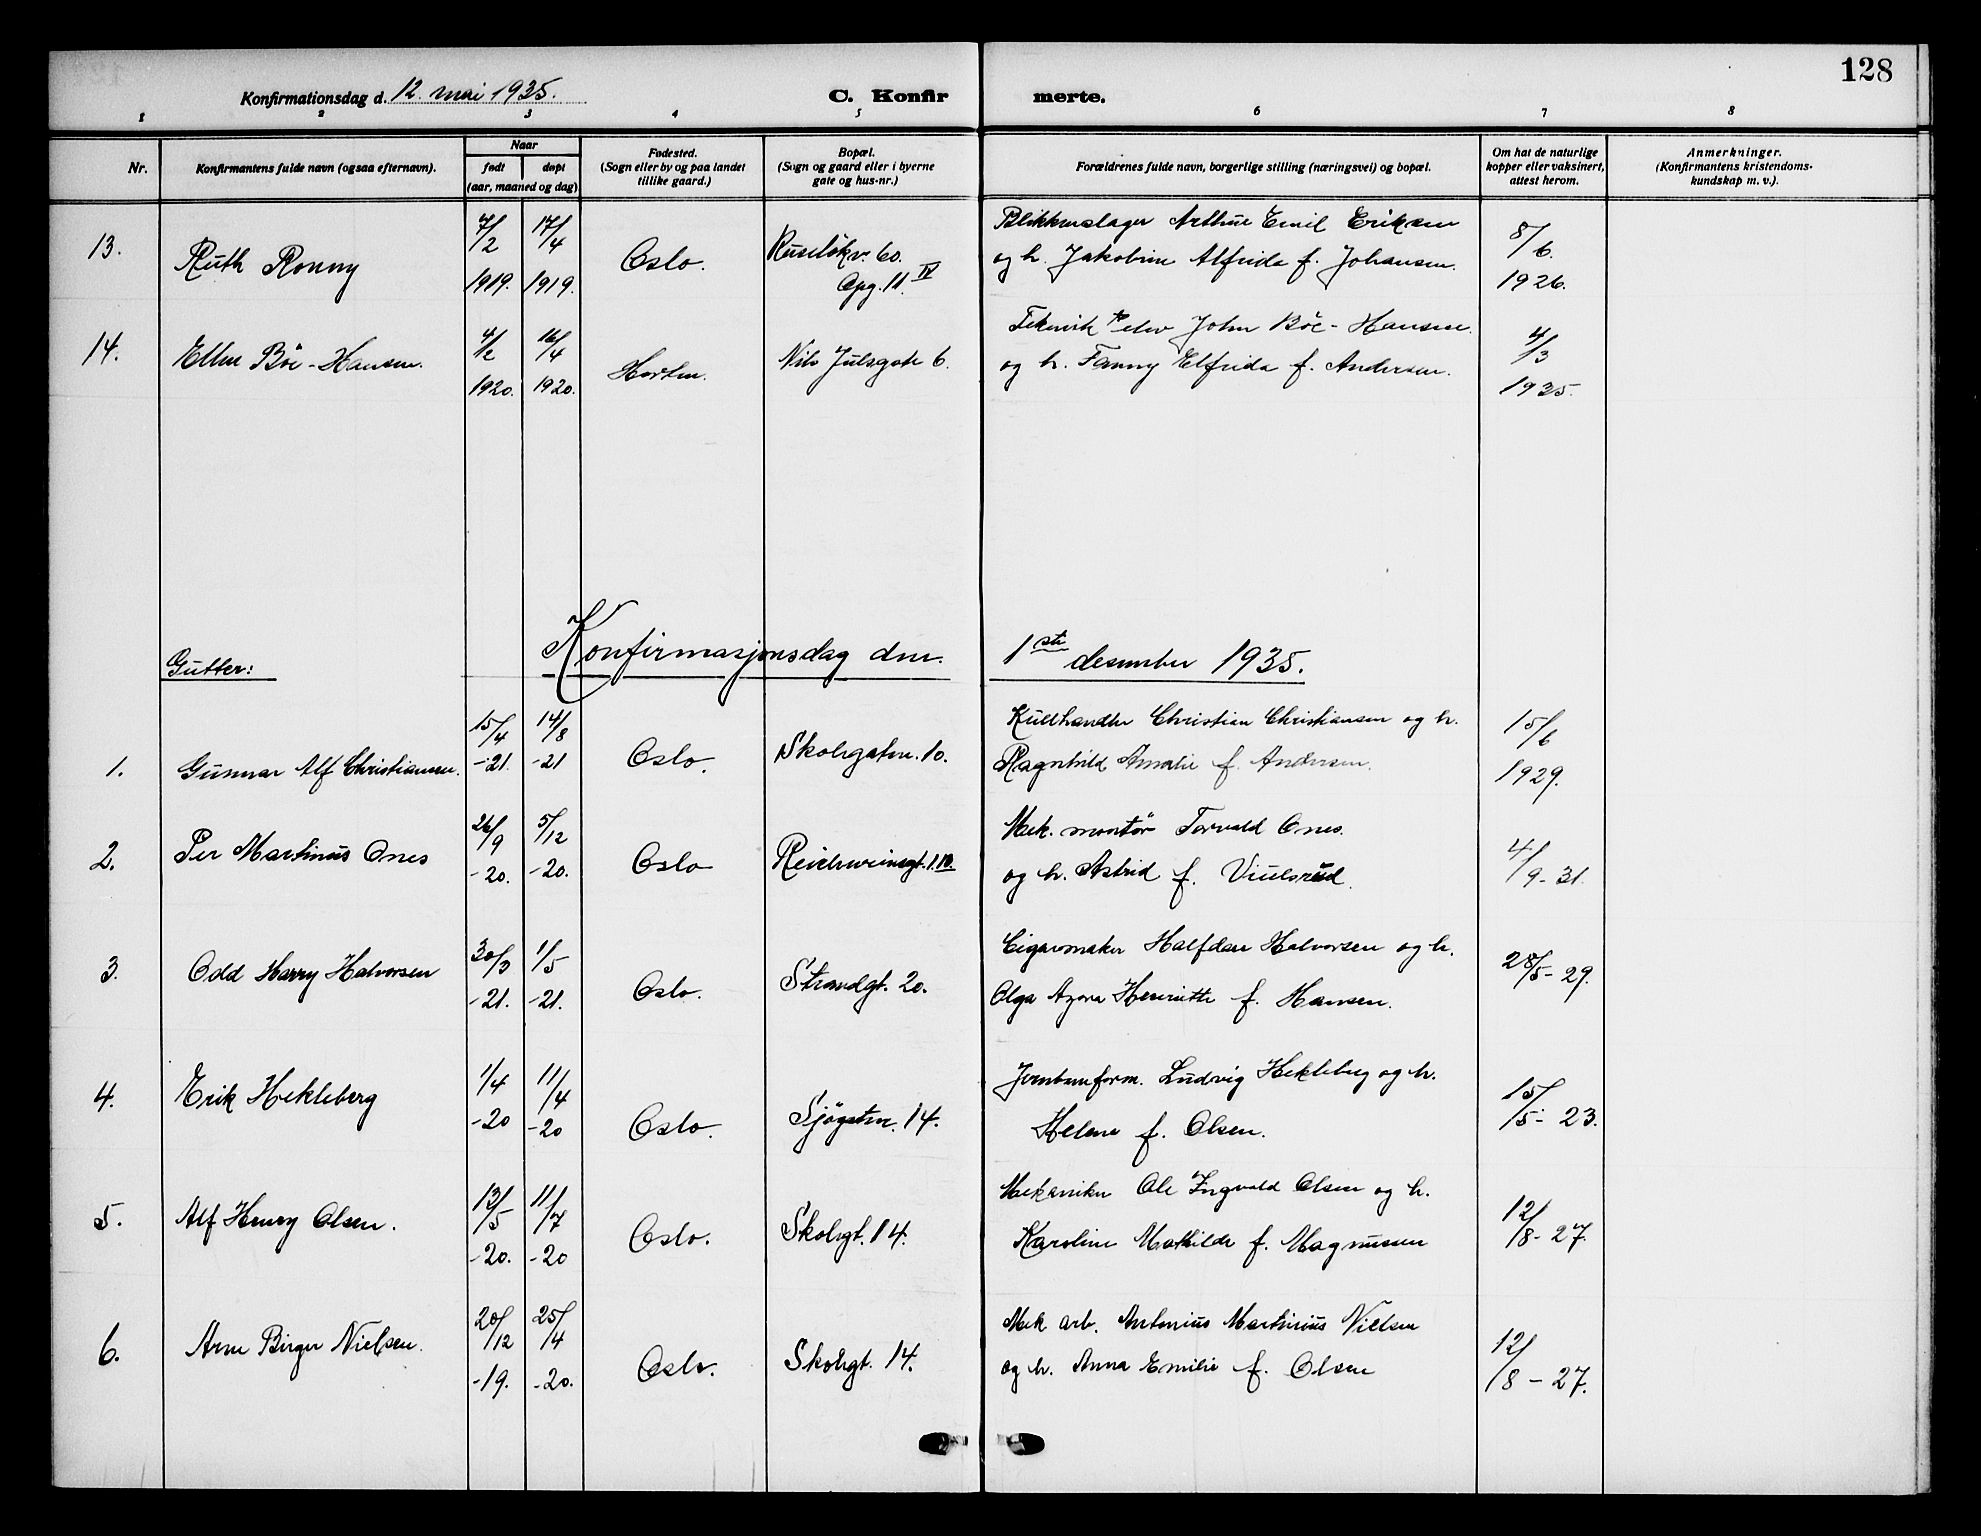 128
Konfirmationsdag d. 12. mai 1935.
C. Konfir merte.
1 2 3 4 5 6 7 8
Nr.
Konfirmantens fulde navn (ogsaa efternavn).
Naar
født døpt
(aar, maaned og dag)
Fødested.
(Sogn eller by og paa landet
tillike gaard.)
Bopæl.
(Sogn og gaard eller i byerne
gate og hus-nr.)
Forældrenes fulde navn, borgerlige stilling (næringsvei) og bopæl.
Om hat de naturlige
kopper eller vaksinert,
attest herom.
Anmerkninger.
(Konfirmantens kristendoms-
kundskap m. v.).
13.
Ruth Ronny
7/2
1919.
17/4
1919.
Oslo.
Ruselökv. 60.
Opg. 11. IV
Blikkenslager Arthur Emil Eriksen
og h. Jakobine Alfrida f. Johansen.
8/6.
1926.
14.
Ellen Böe-Hansen.
4/2
1920.
16/4
1920.
Horten.
Nils Julsgate 6.
elev John Böe-Hansen.
og h. Fanny Elfrida f. Andersen.
4/3
1935.
Gutter:
Konfirmasjonsdag den. 1ste desember 1935.
1.
Gunnar Alf Christiansen.
15/4
-21.
14/8
-21
Oslo.
Skolegaten. 10.
Kullhandler Christian Christiansen og h.
Ragnhild Amalie f. Andersen.
15/6
1929.
2.
Per Martinus Ones
26/9
-20.
5/12
-20.
Oslo
Reichweinsgt. 1.
Mek. montør Torvald Ones.
og h. Astrid f. Viulsrud.
4/9-31.
3.
Odd Harry Halvorsen
30/3
-21.
1/5
-21.
Oslo.
Strandgt. 20.
Cigarmaker Halfdan Halvorsen og h.
Olga Agora Henriette f. Hansen.
28/5-29.
4.
Erik Hekleberg
1/4
-20
11/4
-20
Oslo.
Sjögaten. 14.
Jernbaneform. Ludvig Hekleberg og h.
Helene f. Olsen.
15/5-23.
5.
Alf Henry Olsen.
13/5
-20.
11/7
-20
Oslo.
Skolegt. 14.
Mekaniker Ole Ingvald Olsen og h.
Karoline Mathilde f. Magnusen
12/8-27.
6.
Arne Birger Nielsen.
20/12
-19.
25/4
-20.
Oslo.
Skolegt. 14.
Mek arb. Antonius Martinius Nielsen
og h. Anna Emilie f. Olsen
12/8-27.